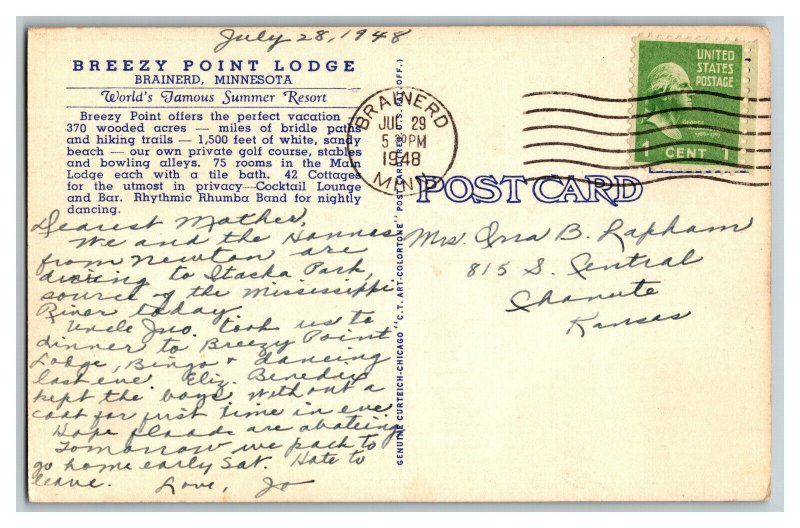 July 28, 1948
BREEZY POINT LODGE
BRAINERD, MINNESOTA
World's Famous Summer Resort
Breezy Point offers the perfect vacation —
370 wooded acres — miles of bridle paths
and hiking trails — 1,500 feet of white, sandy
beach — our own private golf course, stables
and bowling alleys. 75 rooms in the Main
Lodge each with a tile bath. 42 Cottages
for the utmost in privacy—Cocktail Lounge
and Bar. Rhythmic Rhumba Band for nightly
dancing.
Dearest Mother,
We and the Hannas
from Newton are
driving to Itaska Park,
source of the Mississippi
River today.
Uncle Jno. took us to
dinner to Breezy Point
Lodge, Bingo & dancing
last eve. Eliz. Benedix
kept the boys. Without a
coat for first time in eve.
Hope floods are abateing
Tomorrow we pack to
go home early Sat. Hate to
leave. Love, Jo
GENUINE CURTEICH-CHICAGO "C.T. ART-COLORTONE" POST CARD (REG. U.S. PAT. OFF.)
BRAINERD
JUL 29
5 30 PM
1948
MINN.
UNITED
STATES
POSTAGE
1 CENT 1
POST CARD
Mrs. Ona B. Lapham
815 S. Central
Chanute
Kansas